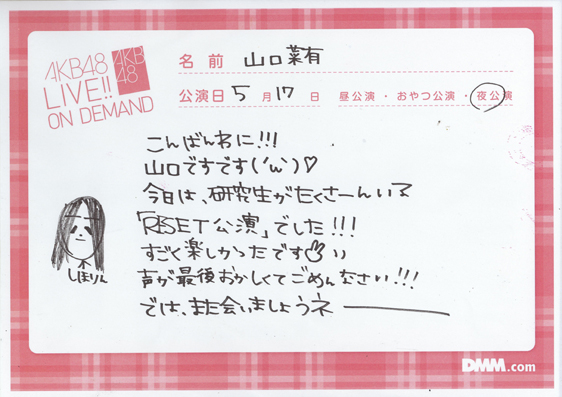 AKB48
LIVE!!
ON DEMAND
AKB
48
名前 山口菜有
公演日 5月17日 昼公演・おやつ公演・夜公演
こんばんわに!!!
山口ですです('ω')♡
今日は、研究生がたくさーんいる
「RESET公演」でした!!!
すごく楽しかったです
声が最後おかしくてごめんなさい!!!
では、また会いましょうネ
しほりん
DMM.com